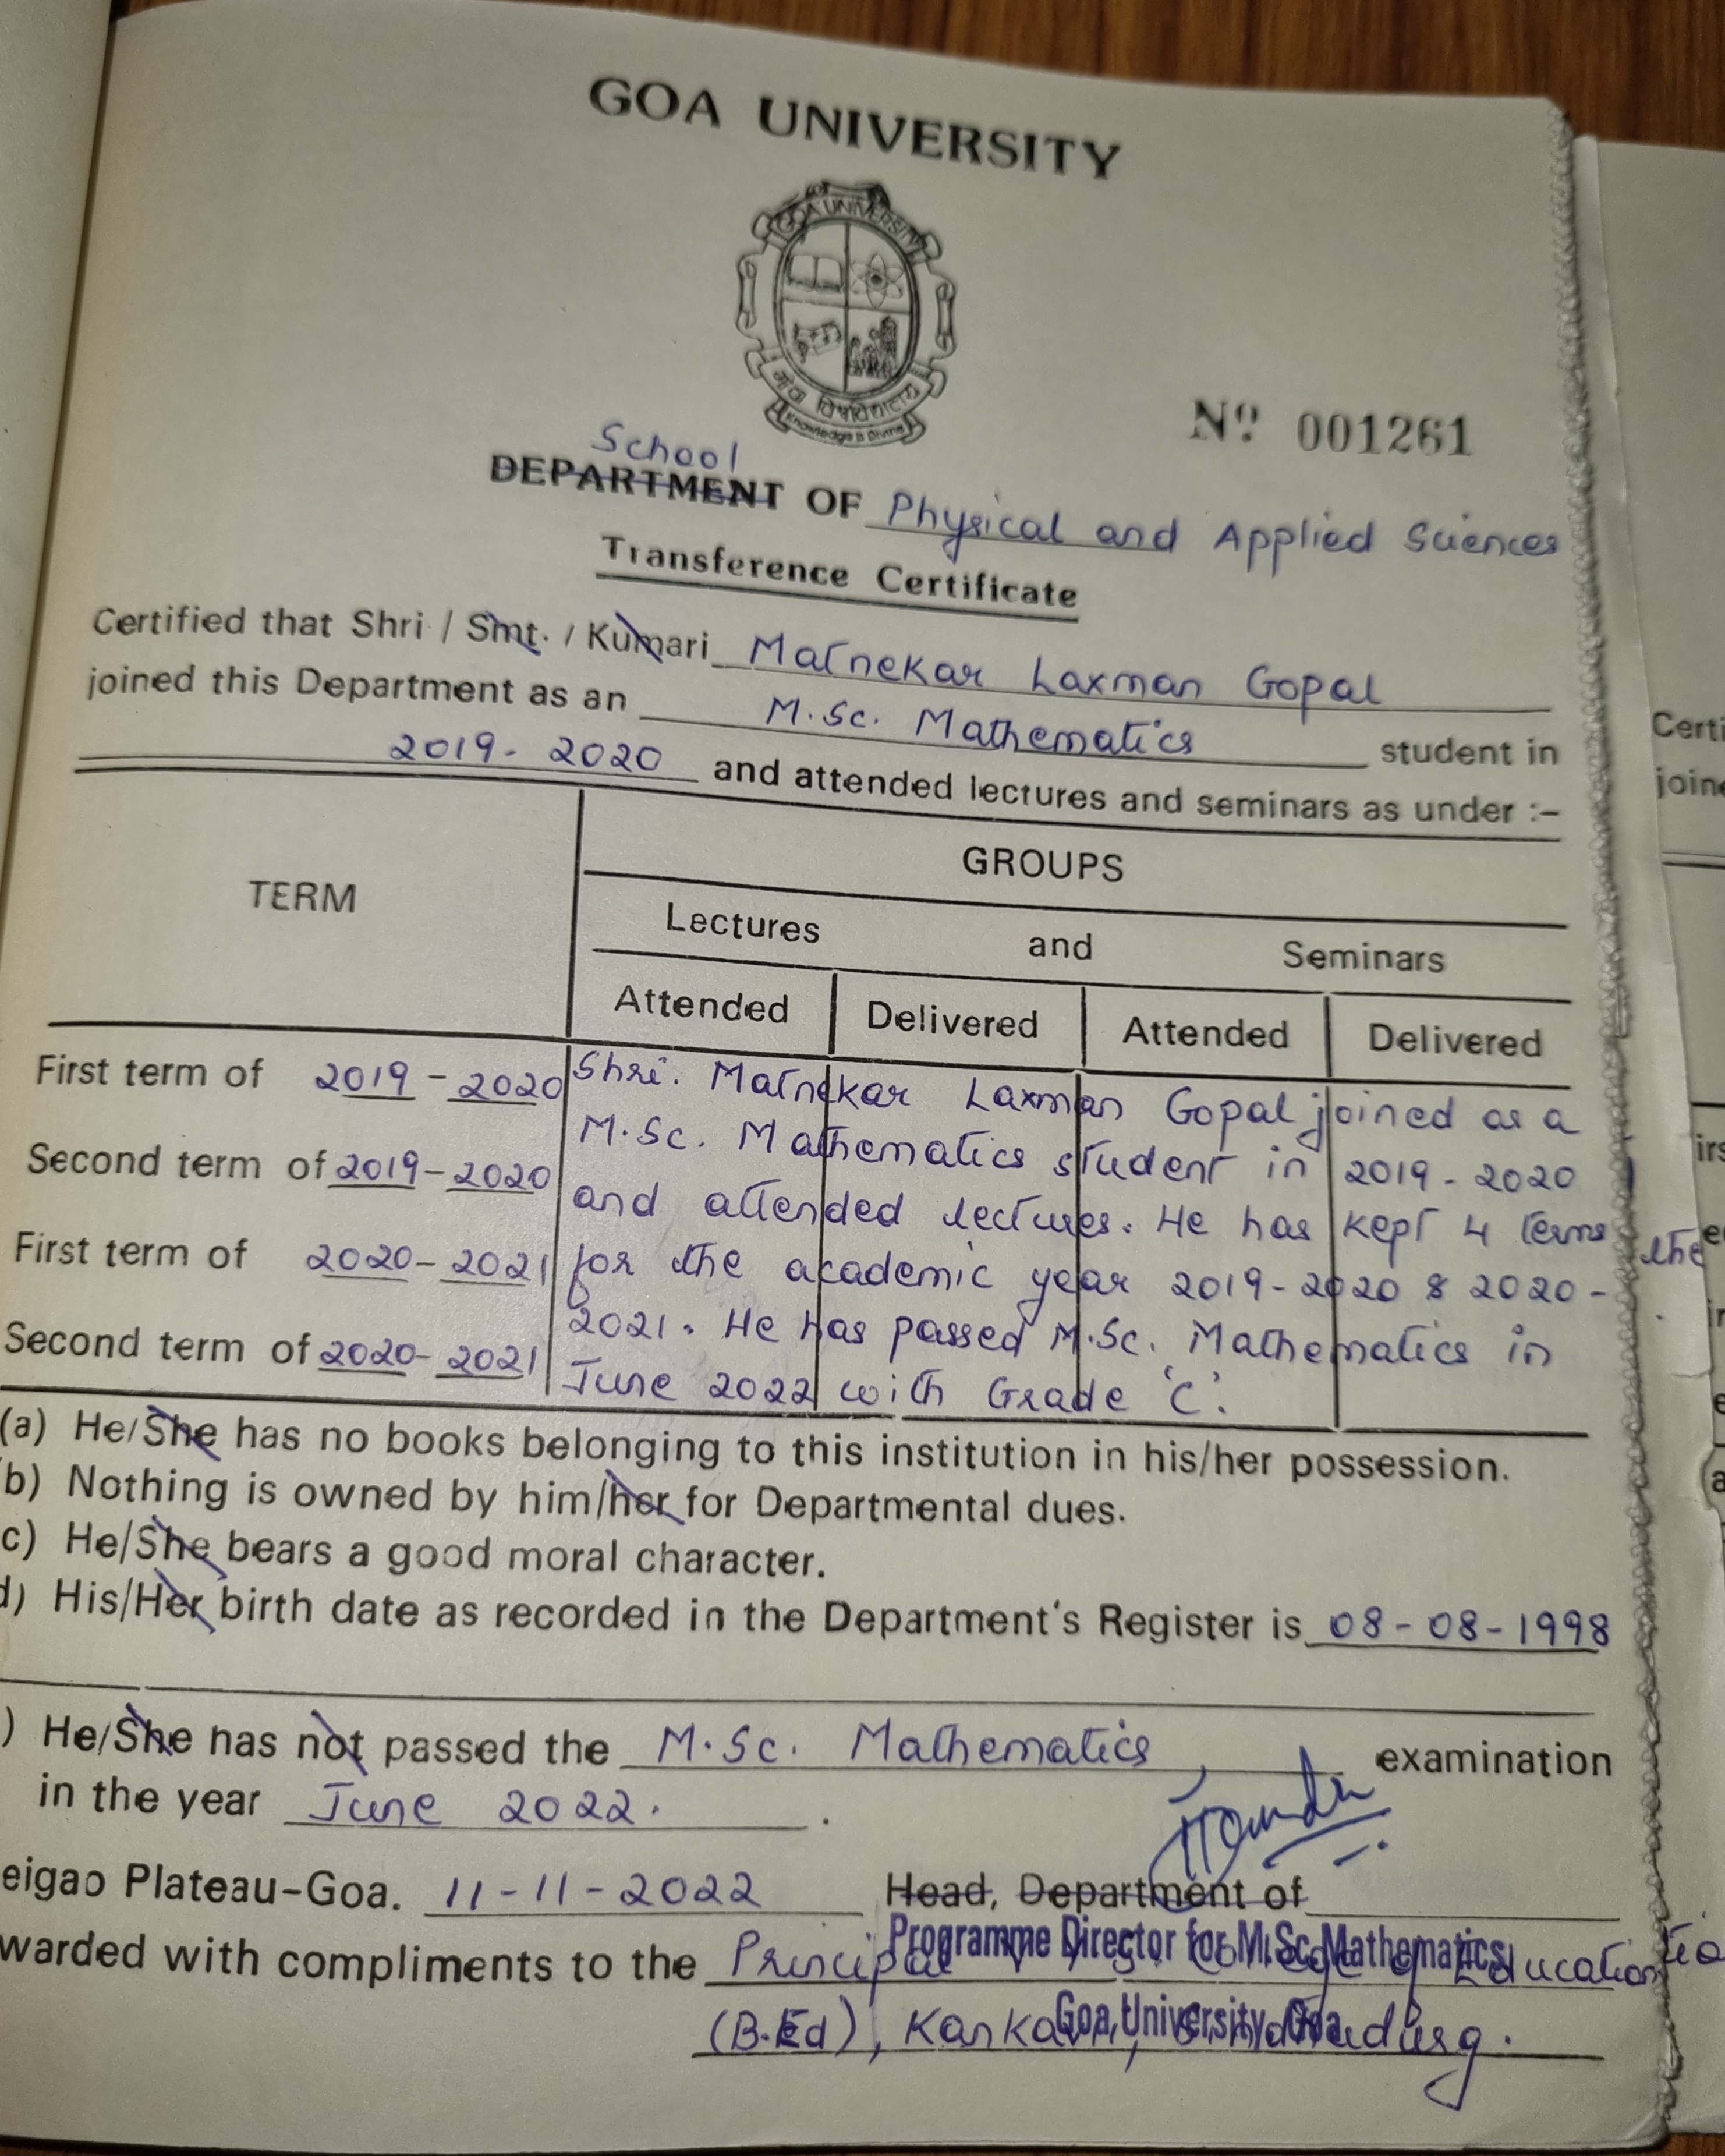 GOA UNIVERSITY
GOA UNIVERSITY
गोंय विद्यापीठ
Knowledge is Divine
Nº 001261
School
DEPARTMENT OF Physical and Applied Sciences
Transference Certificate
Certified that Shri / Smt. / Kumari Matnekar Laxman Gopal
joined this Department as an M.Sc. Mathematics student in
2019-2020 and attended lectures and seminars as under :–
TERM
GROUPS
Lectures and Seminars
Attended Delivered Attended Delivered
First term of 2019-2020
Second term of 2019-2020
First term of 2020-2021
Second term of 2020-2021
Shri. Matnekar Laxman Gopal joined as a
M.Sc. Mathematics student in 2019-2020
and attended lectures. He has kept 4 terms
for the academic year 2019-2020 & 2020-
2021. He has passed M.Sc. Mathematics in
June 2022 with Grade 'C'.
(a) He/She has no books belonging to this institution in his/her possession.
b) Nothing is owned by him/her for Departmental dues.
c) He/She bears a good moral character.
d) His/Her birth date as recorded in the Department's Register is 08-08-1998
) He/She has not passed the M.Sc. Mathematics examination
in the year June 2022.
eigao Plateau-Goa. 11-11-2022 Head, Department of
Programme Director for M.Sc. Mathematics
Goa University, Goa
warded with compliments to the Principal College of Education
(B.Ed), Sindhudurg.
Certi
join
the